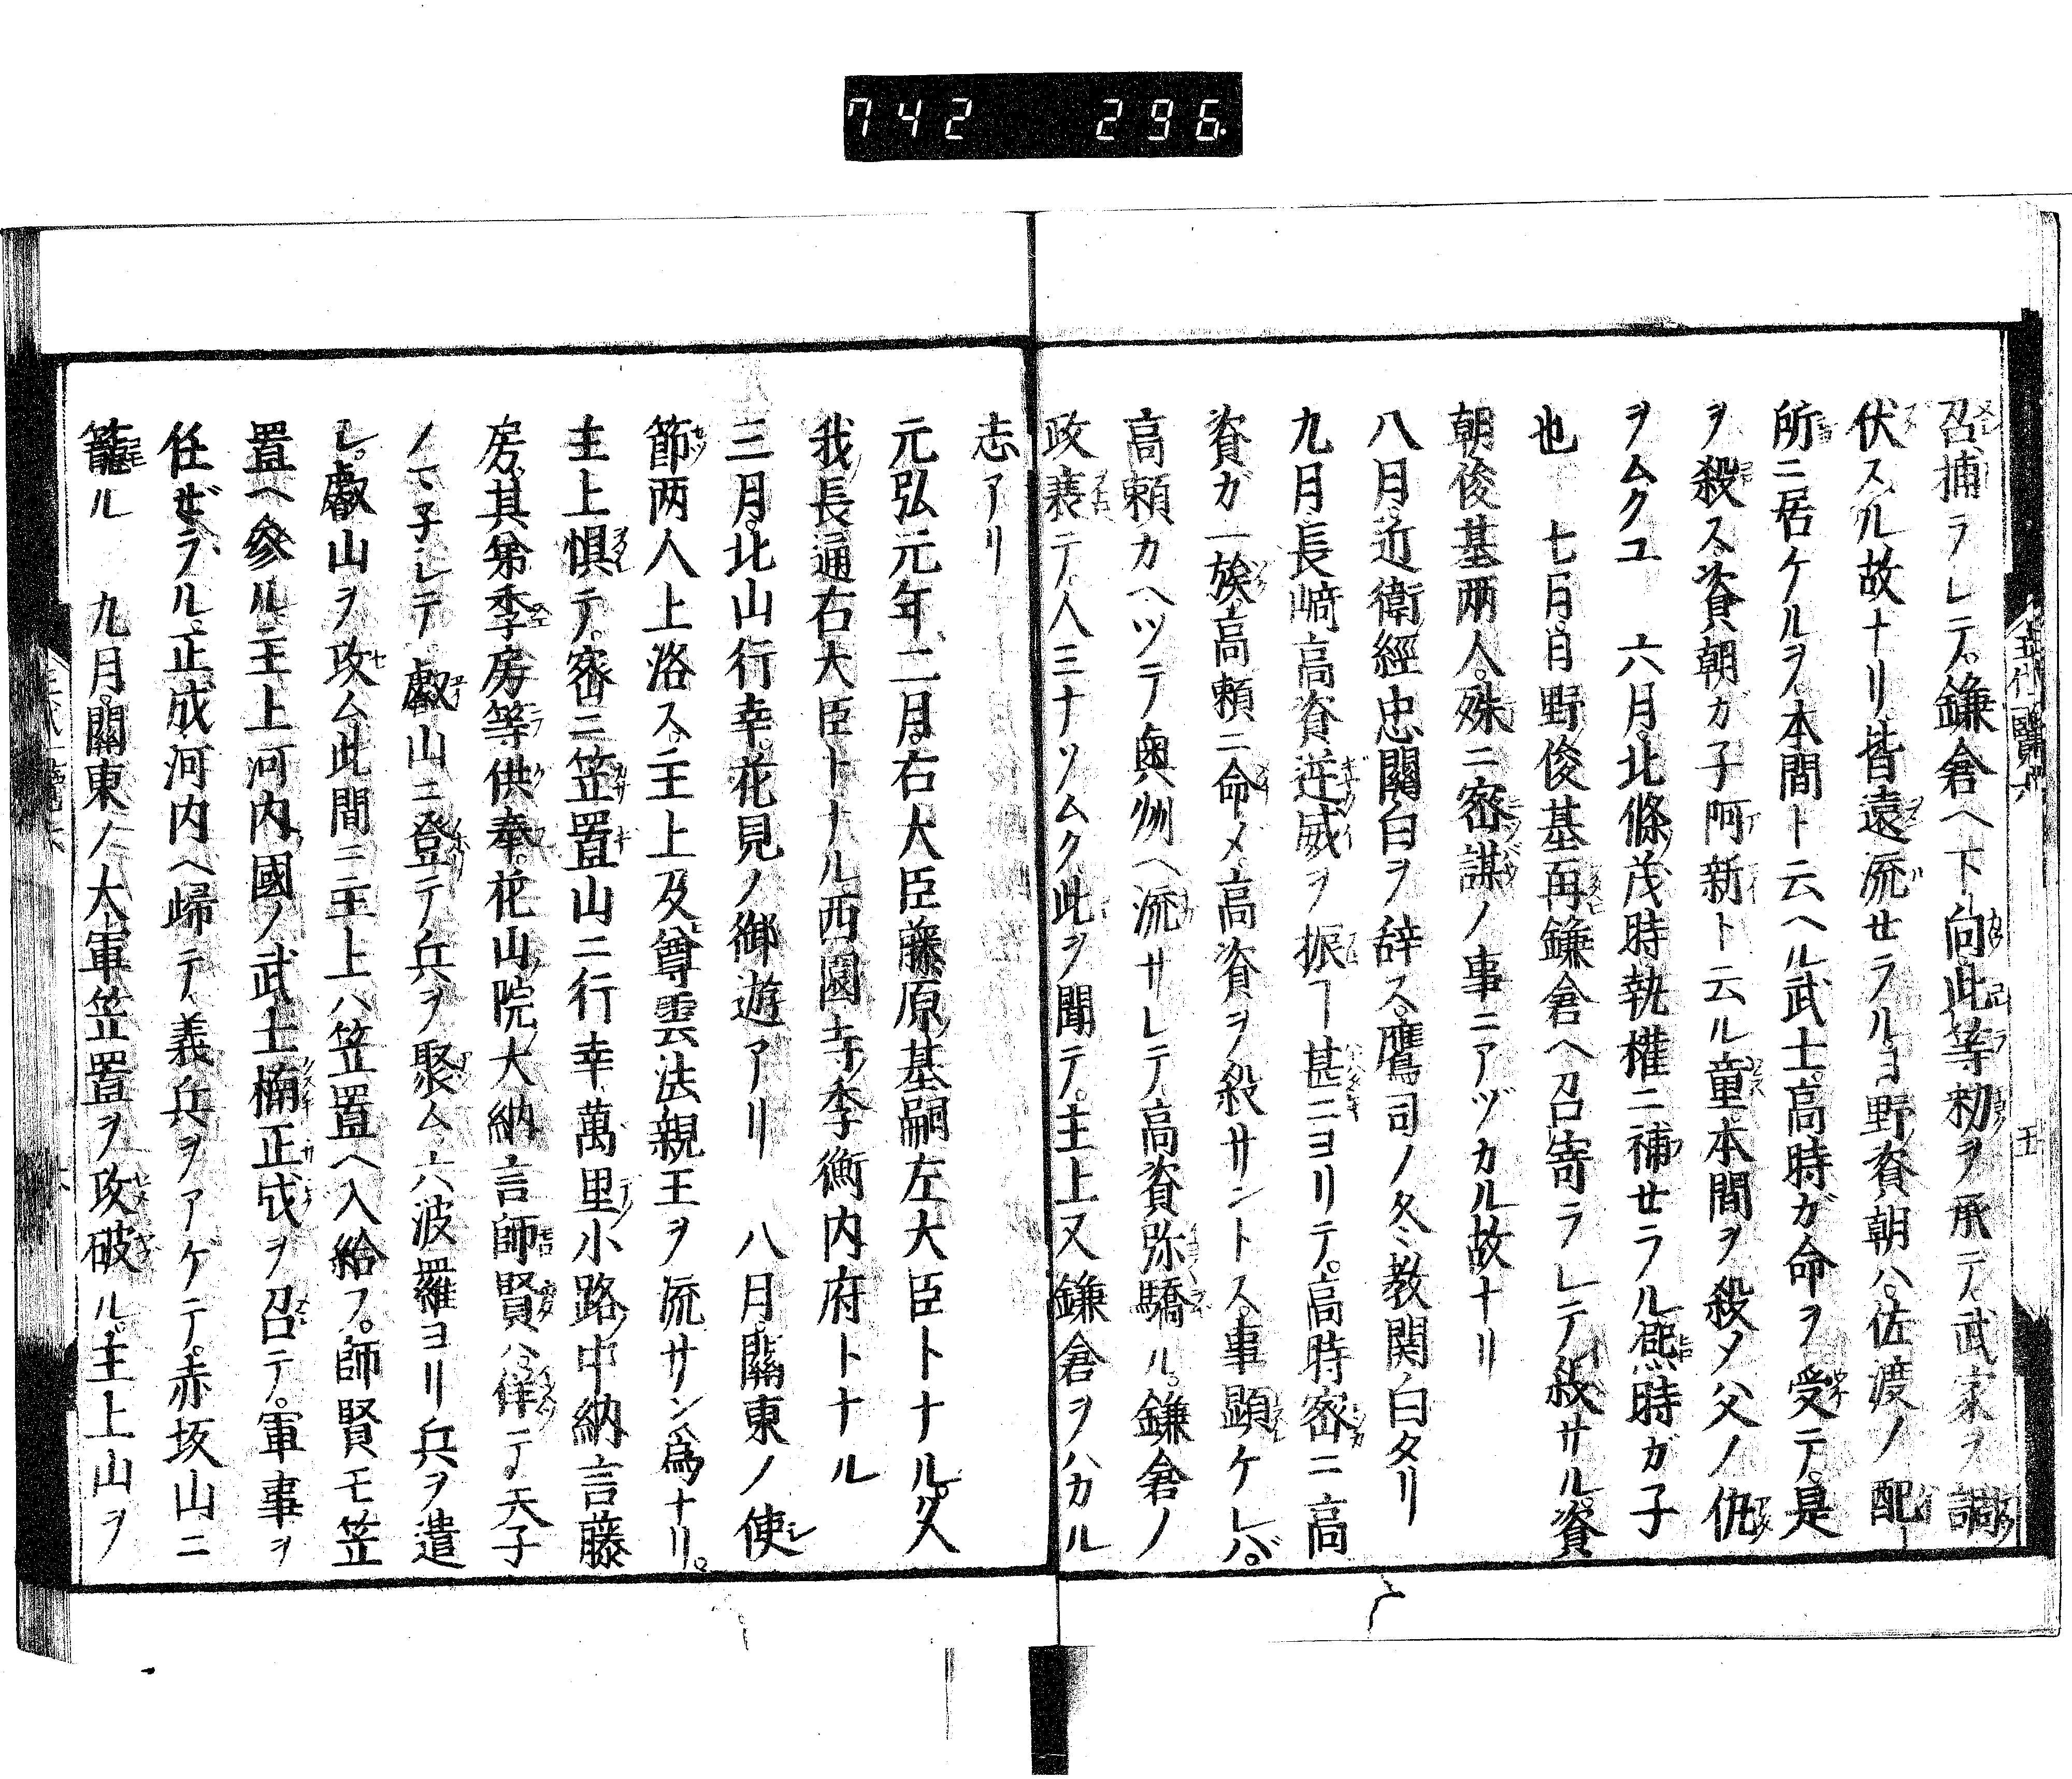 742 296
召捕ラレテ。鎌倉ヘ下向。此等勅ヲ承テ、武家ヲ調
伏スル故ナリ。皆遠流セラル。日野資朝ハ。佐渡ノ配
所ニ居ケルヲ。本間ト云ヘル武士。高時ガ命ヲ受テ。是
ヲ殺ス。資朝ガ子阿新ト云ル童本間ヲ殺メ父ノ仇
ヲムクユ　六月。北條茂時執權ニ補セラル。熈時ガ子
也　七月。日野俊基再鎌倉ヘ召寄ラレテ殺サル。資
朝俊基兩人。殊ニ密謀ノ事ニアヅカル故ナリ
八月。近衛經忠關白ヲ辞ス。鷹司ノ冬教関白タリ
九月。長﨑高資逆威ヲ振ヿ甚ニヨリテ。高時密ニ高
資ガ一族高頼ニ命メ。高資ヲ殺サントス。事顕ケレバ。
高頼カヘツテ奥州ヘ流サレテ、高資弥驕ル。鎌倉ノ
政衰テ。人ミナソムク。此ヲ聞テ。主上又鎌倉ヲハカル
志アリ
元弘元年。二月。右大臣藤原基嗣左大臣トナル。久
我長通右大臣トナル。西園寺季衡内府トナル
三月。北山行幸。花見ノ御遊アリ　八月。關東ノ使
節两人上洛ス。主上及尊雲法親王ヲ流サン為ナリ。
主上惧テ。密ニ笠置山ニ行幸。萬里小路中納言藤
房。其弟季房等供奉。花山院大納言師賢ハ。佯テ天子
ノマ子シテ。叡山ニ登テ兵ヲ聚ム。六波羅ヨリ兵ヲ遣
シ。叡山ヲ攻ム。此間ニ主上ハ笠置ヘ入給フ。師賢モ笠
置ヘ參ル。主上河内國ノ武士楠正成ヲ召テ。軍事ヲ
任ぜラル。正成河内ヘ歸テ、義兵ヲアゲテ。赤坂山ニ
籠ル　九月。關東ノ大軍笠置ヲ攻破ル。主上山ヲ